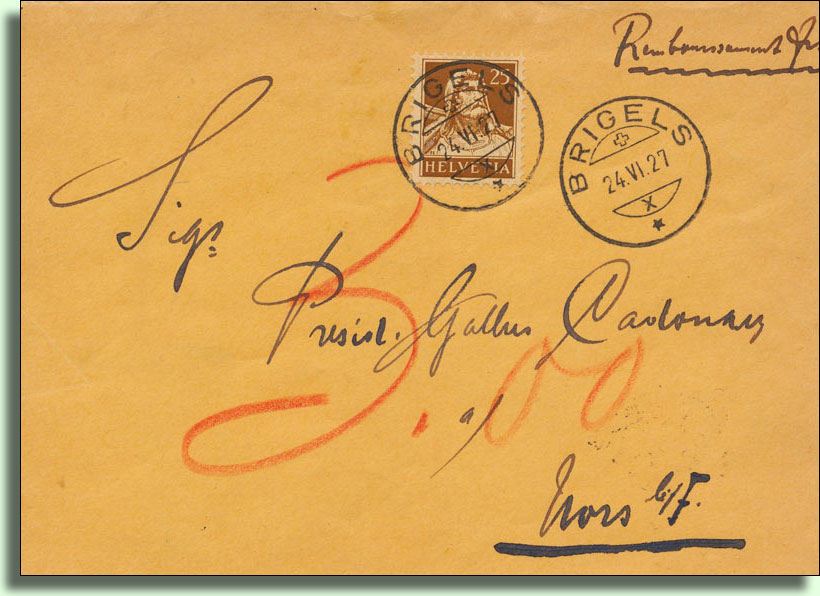 Remboursement Fr
25
HELVETIA
BRIGELS
24.VI.27
X
BRIGELS
24.VI.27
X
Sigr
Presid. Gallus Cadonau
3.00
a/
b/F.